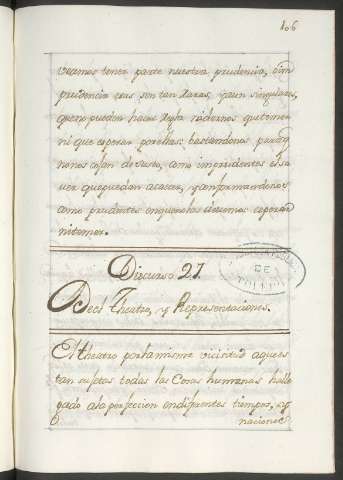 106
veamos tener parte nuestra prudencia, ò im
prudencia esas son tan raras, y aun singulares,
que no pueden hacer regla ni devemos que temer
ni que esperar por ellas: bastandonos para q
no nos cojan de susto, como imprudentes el sa
ver que puedan acaecer, y conformandonos
como prudentes en que no las devemos esperar
ni temer.
Discurso 27.
Del Theatro, y Representaciones.
El theatro por la misma vicisitud a que es
tan sujetas todas las Cosas humanas ha lle
gado a la perfeccion en diferentes tiempos, y
naciones
DE
TOLEDO